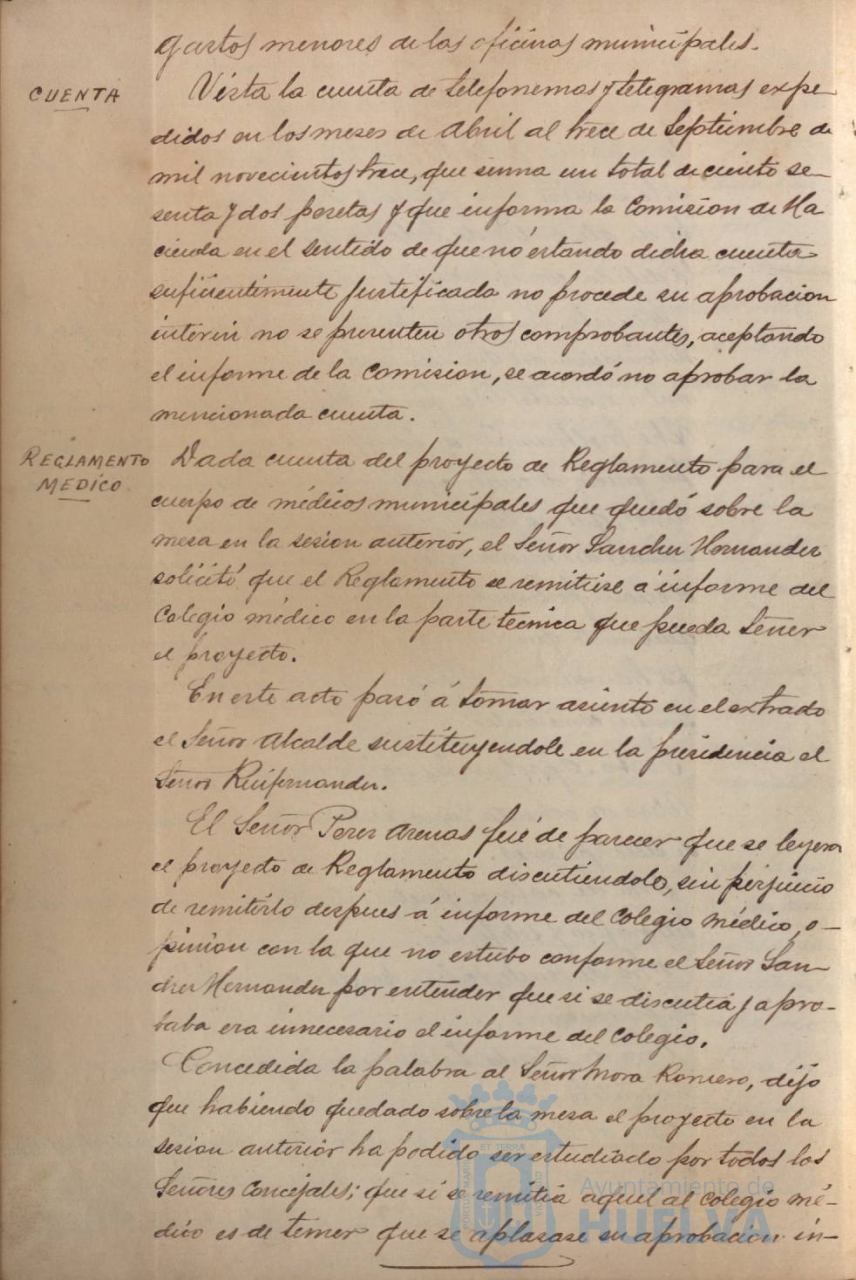 gastos menores de las oficinas municipales.
CUENTA
Vista la cuenta de telefonemas y telegramas expe-
didos en los meses de Abril al trece de Septiembre de
mil novecientos trece, que suma un total de ciento se-
senta y dos pesetas y que informa la Comision de Ha
cienda en el sentido de que no estando dicha cuenta
suficientimente justificada no procede su aprobacion
interin no se presenten otros comprobantes, aceptando
el informe de la Comision, se acordó no aprobar la
mencionada cuenta.
REGLAMENTO
MEDICO
Dada cuenta del proyecto de Reglamento para el
cuerpo de médicos municipales que quedó sobre la
mesa en la sesion anterior, el Señor Sanchez Hernandez
solicitó que el Reglamento se remitiese á informe del
Colegio médico en la parte tecnica que pueda tener
el proyecto.
En este acto pasó á tomar asiento en el extrado
el Señor Alcalde sustituyendole en la presidencia el
Señor Ruifernandez.
El Señor Perez Arenas fué de parecer que se leyera
el proyecto de Reglamento discutiendolo, sin perjuicio
de remitirlo despues á informe del Colegio médico, o-
pinion con la que no estubo conforme el Señor San-
chez Hernandez por entender que si se discutia y apro-
baba era innecesario el informe del Colegio.
Concedida la palabra al Señor Mora Romero, dijo
que habiendo quedado sobre la mesa el proyecto en la
sesion anterior ha podido ser estudiado por todos los
Señores Concejales; que si se remitia aquel al Colegio mé-
dico es de temer que se aplasase su aprobacion in-
Ayuntamiento de
HUELVA